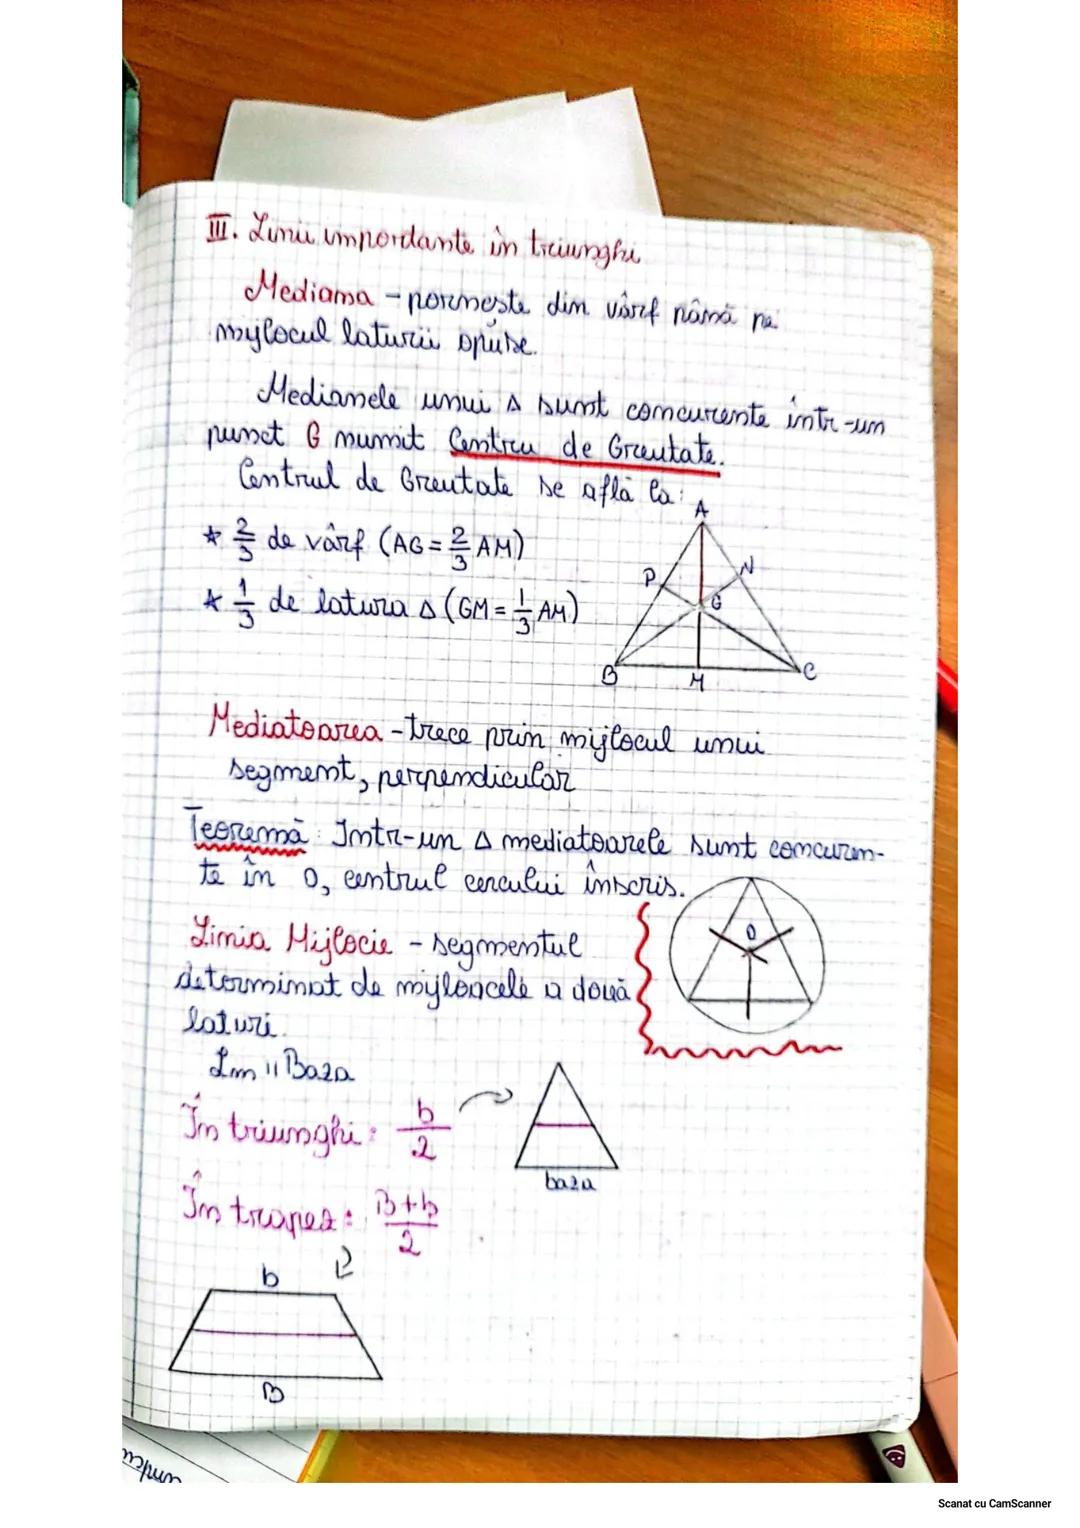 III. Linii impordante în triunghi
Mediana - pornește din vârf până pe
mijlocul laturii opuse.
Medianele unui Δ sunt concurente într-un
punct G numit Centru de Greutate.
Centrul de Greutate se află la:
* 2/3 de vârf (AG = 2/3 AM)
* 1/3 de latura Δ (GM = 1/3 AM)
A
P
N
G
B
M
C
Mediatoarea - trece prin mijlocul unui
segment, perpendicular
Teoremă: Într-un Δ mediatoarele sunt concuren-
te în O, centrul cercului înscris.
O
Linia Mijlocie - segmentul
determinat de mijloacele a două
laturi.
Lm || Baza
În triunghi: b/2
baza
În trapez: B+b/2
b
B
Scanat cu CamScanner